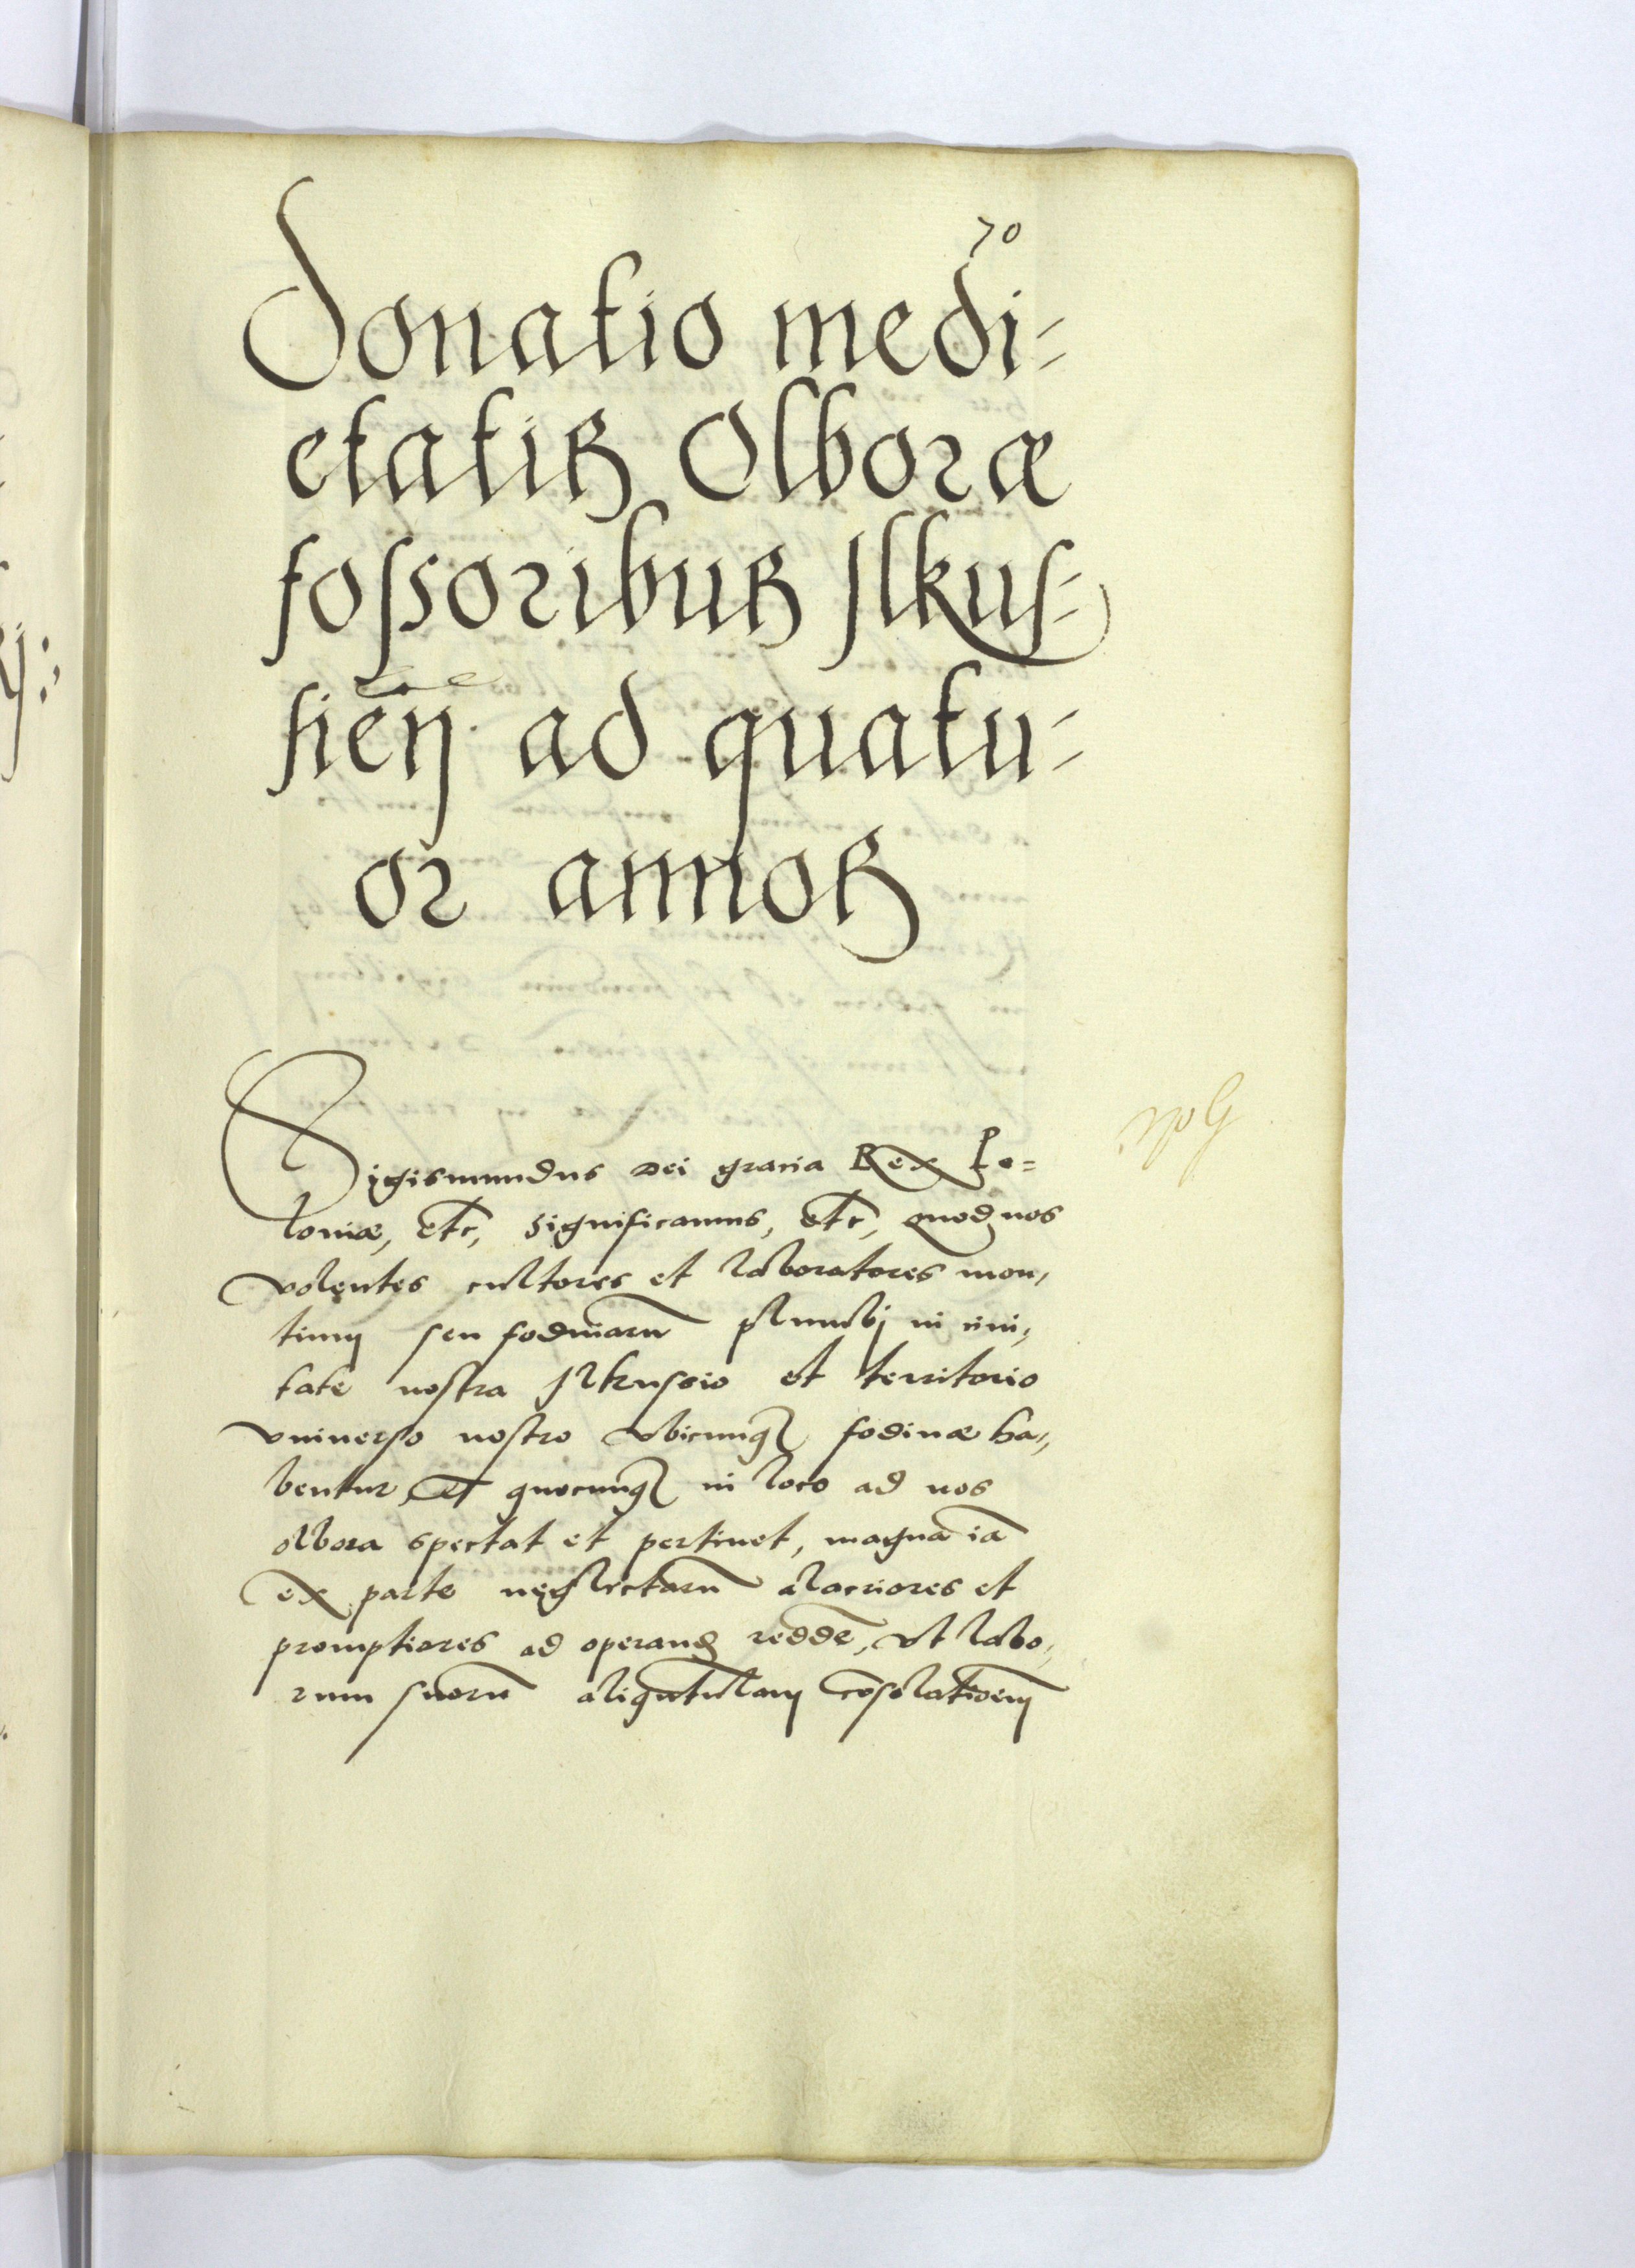 70
Donatio medi-
etatis Olboræ
fossoribus Ilkus-
sien̄ ad quatu-
or annos
Sigismundus Dei gracia Rex Po-
loniæ, etc, significamus, etc, quod nos
volentes cultores et laboratores mon,
tium seu fodinarū plumbj in civi,
tate nostra Ilkussio et territorio
vniuerso nostro vbicunq fodinæ ha,,
bentur, et quocunq in loco ad nos
olbora spectat et pertinet, magna iā
ex parte neglectarū alacriores et
promptiores ad operand reddē, vt labo,
rum suorū aliquātulam cōsolationem